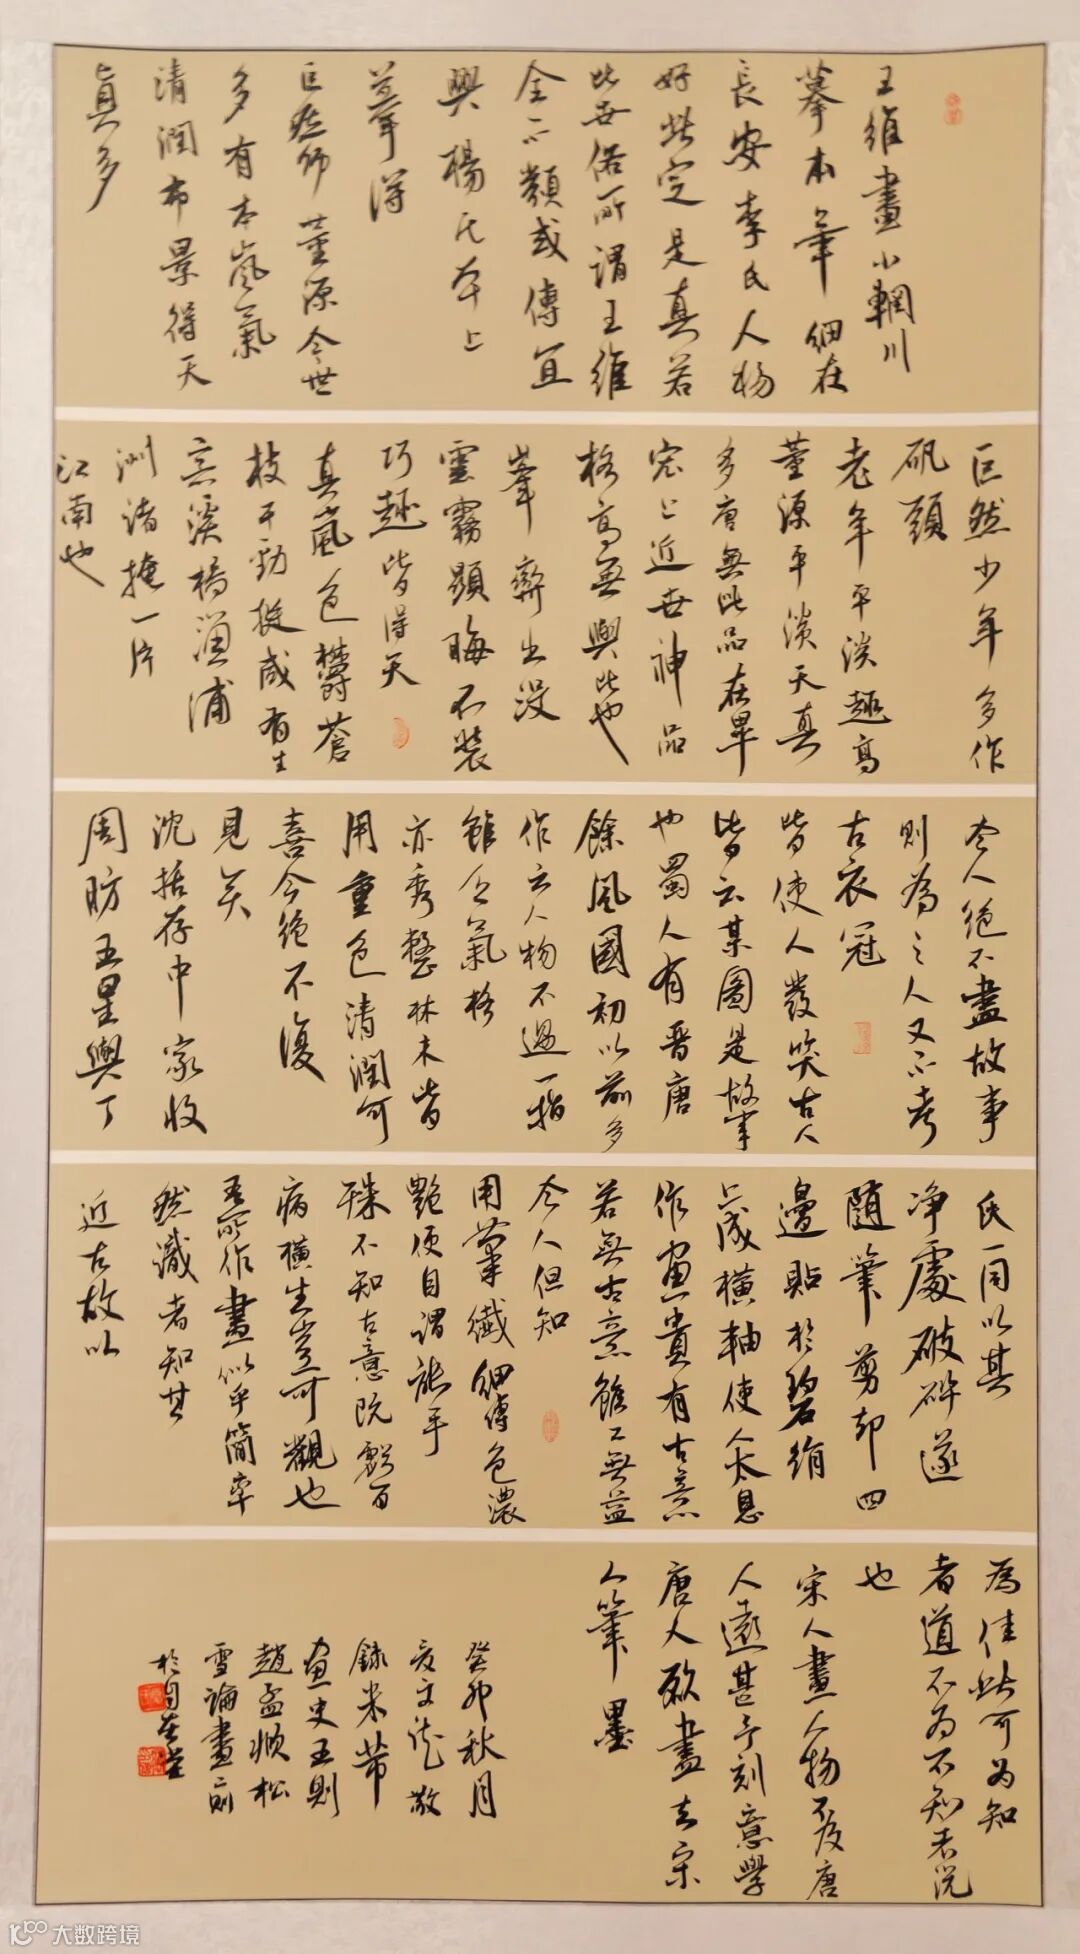 王維畫小輞川
摹本筆細在
長安李氏人物
好此定是真若
比世俗所謂王維
全不類或傳宜
興楊氏本上
摹得
巨然師董源今世
多有本嵐氣
清潤布景得天
真多
巨然少年多作
礬頭
老年平淡趣高
董源平淡天真
多唐無此品在畢
宏上近世神品
格高無與比也
峯巒出沒
雲霧顯晦不裝
巧趣皆得天
真嵐色欝蒼
枝干勁挺咸有生
意溪橋漁浦
洲渚掩一片
江南也
今人絕不畫故事
則為之人又不考
古衣冠
皆使人發笑古人
皆云某圖是故事
也蜀人有晉唐
餘風國初以前多
作之人物不過一指
雖乏氣格
亦秀整林木皆
用重色清潤可
喜今絕不復
見矣
沈括存中家收
周昉五星與丁
氏一同以其
净處破碎遂
隨筆剪却四
邊貼於碧絹
上成橫軸使人太息
作画貴有古意
若無古意雖工無益
今人但知
用筆纖細傅色濃
艷便自謂能手
殊不知古意既虧百
病橫生豈可觀也
吾所作畫似乎簡率
然識者知其
近古故以
為佳此可为知
者道不为不知者說
也
宋人畫人物不及唐
人遠甚予刻意學
唐人欲盡去宋
人筆墨
癸卯秋月
文龍敬
錄米芾
画史五則
趙孟頫松
雪論畫二則
於
大数跨境